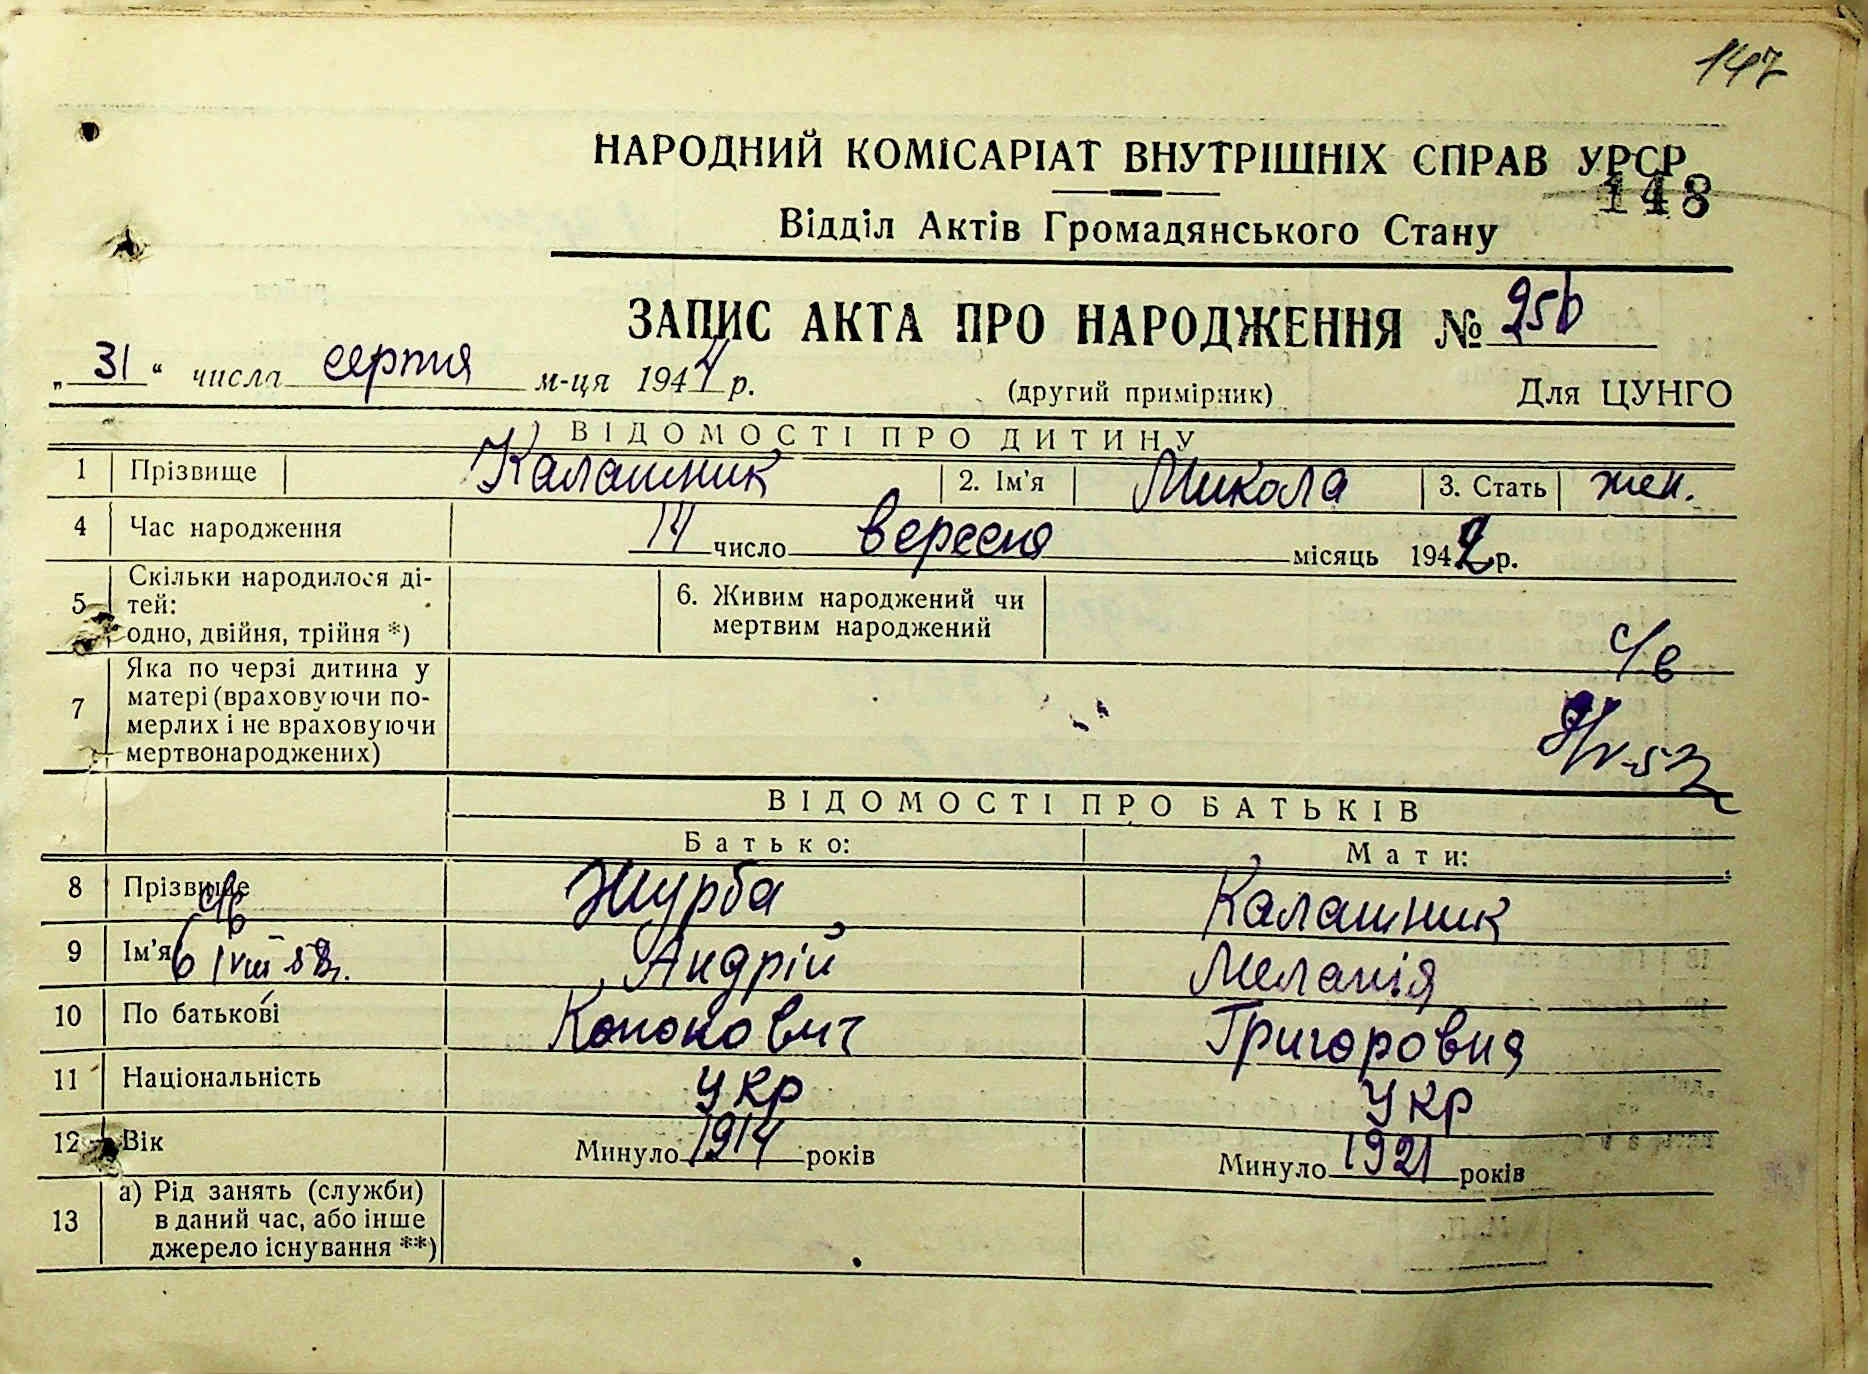 147
НАРОДНИЙ КОМІСАРІАТ ВНУТРІШНІХ СПРАВ УРСР
148
Відділ Актів Громадянського Стану
ЗАПИС АКТА ПРО НАРОДЖЕННЯ № 256
„31“ числа серпня м-ця 1944 р. (другий примірник) Для ЦУНГО
ВІДОМОСТІ ПРО ДИТИНУ
1 Прізвище Калашник 2. Ім'я Микола 3. Стать жен.
4 Час народження 14 число вересня місяць 1942 р.
5 Скільки народилося ді-
тей:
одно, двійня, трійня *)
6. Живим народжений чи
мертвим народжений
с/в
7 Яка по черзі дитина у
матері (враховуючи по-
мерлих і не враховуючи
мертвонароджених)
ВІДОМОСТІ ПРО БАТЬКІВ
Батько: Мати:
8 Прізвище Журба Калашник
с/в
9 Ім'я Андрій Меланія
10 По батькові Кононович Григоровна
11 Національність укр укр
12 Вік Минуло 1914 років Минуло 1921 років
13 а) Рід занять (служби)
в даний час, або інше
джерело існування **)